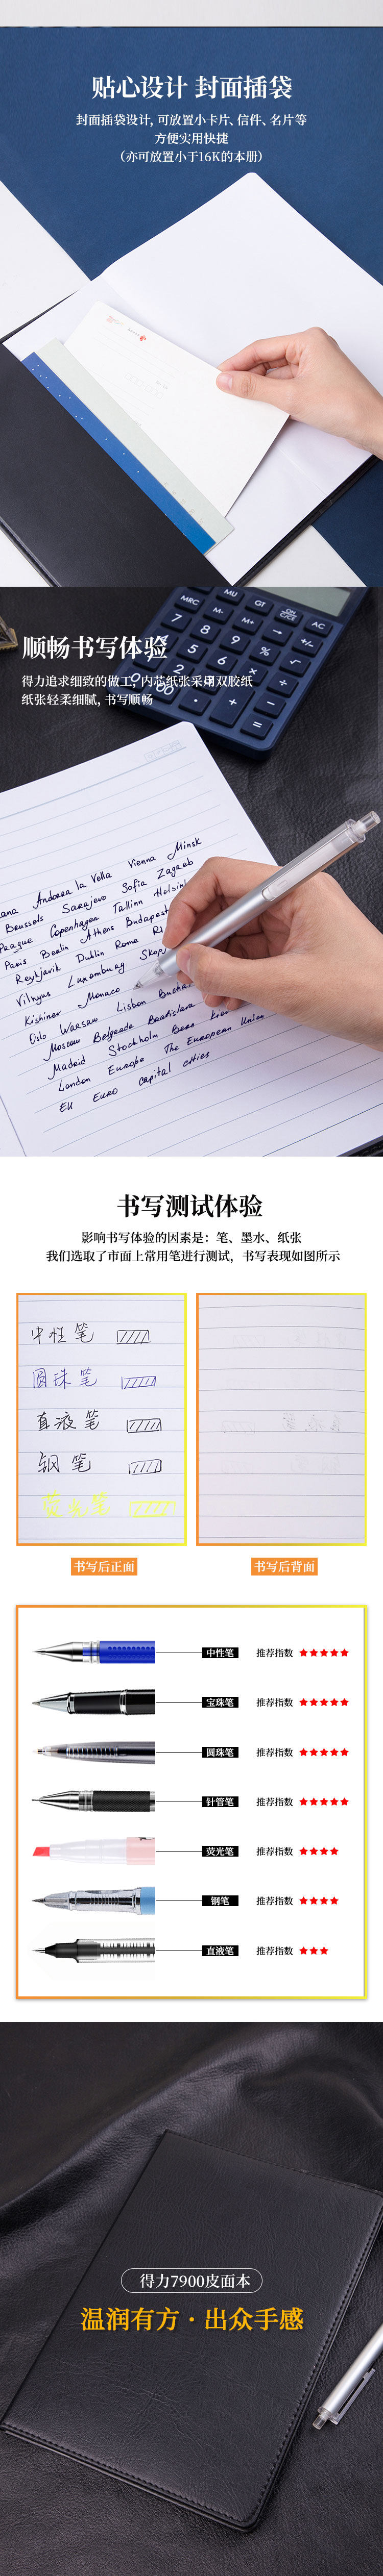 贴心设计 封面插袋
封面插袋设计, 可放置小卡片、信件、名片等
方便实用快捷
（亦可放置小于16K的本册）
MU
GT
MRC
M-
M+
AC
7
8
9
%
√
5
6
2
3
0
00
=
顺畅书写体验
得力追求细致的做工, 内芯纸张采用双胶纸
纸张轻柔细腻, 书写顺畅
Andorra la Vella Vienna Minsk
Brussels Sarajevo Sofia Zagreb
Prague Copenhagen Tallinn Helsin
Paris Berlin Athens Budapest
Reykjavik Dublin Rome
Vilnyus Luxemburg Skop
Kishinev Monaco
Oslo Warsaw Lisbon Buchar
Moscow Belgrade Bratislava
Madrid Stockholm Bern Kiev
London Europe The European Union
EU EURO capital cities
书写测试体验
影响书写体验的因素是：笔、墨水、纸张
我们选取了市面上常用笔进行测试，书写表现如图所示
中性笔
圆珠笔
直液笔
钢笔
荧光笔
书写后正面
书写后背面
中性笔 推荐指数 ★★★★★
宝珠笔 推荐指数 ★★★★★
圆珠笔 推荐指数 ★★★★★
针管笔 推荐指数 ★★★★★
荧光笔 推荐指数 ★★★★
钢笔 推荐指数 ★★★★
直液笔 推荐指数 ★★★
得力7900皮面本
温润有方 · 出众手感